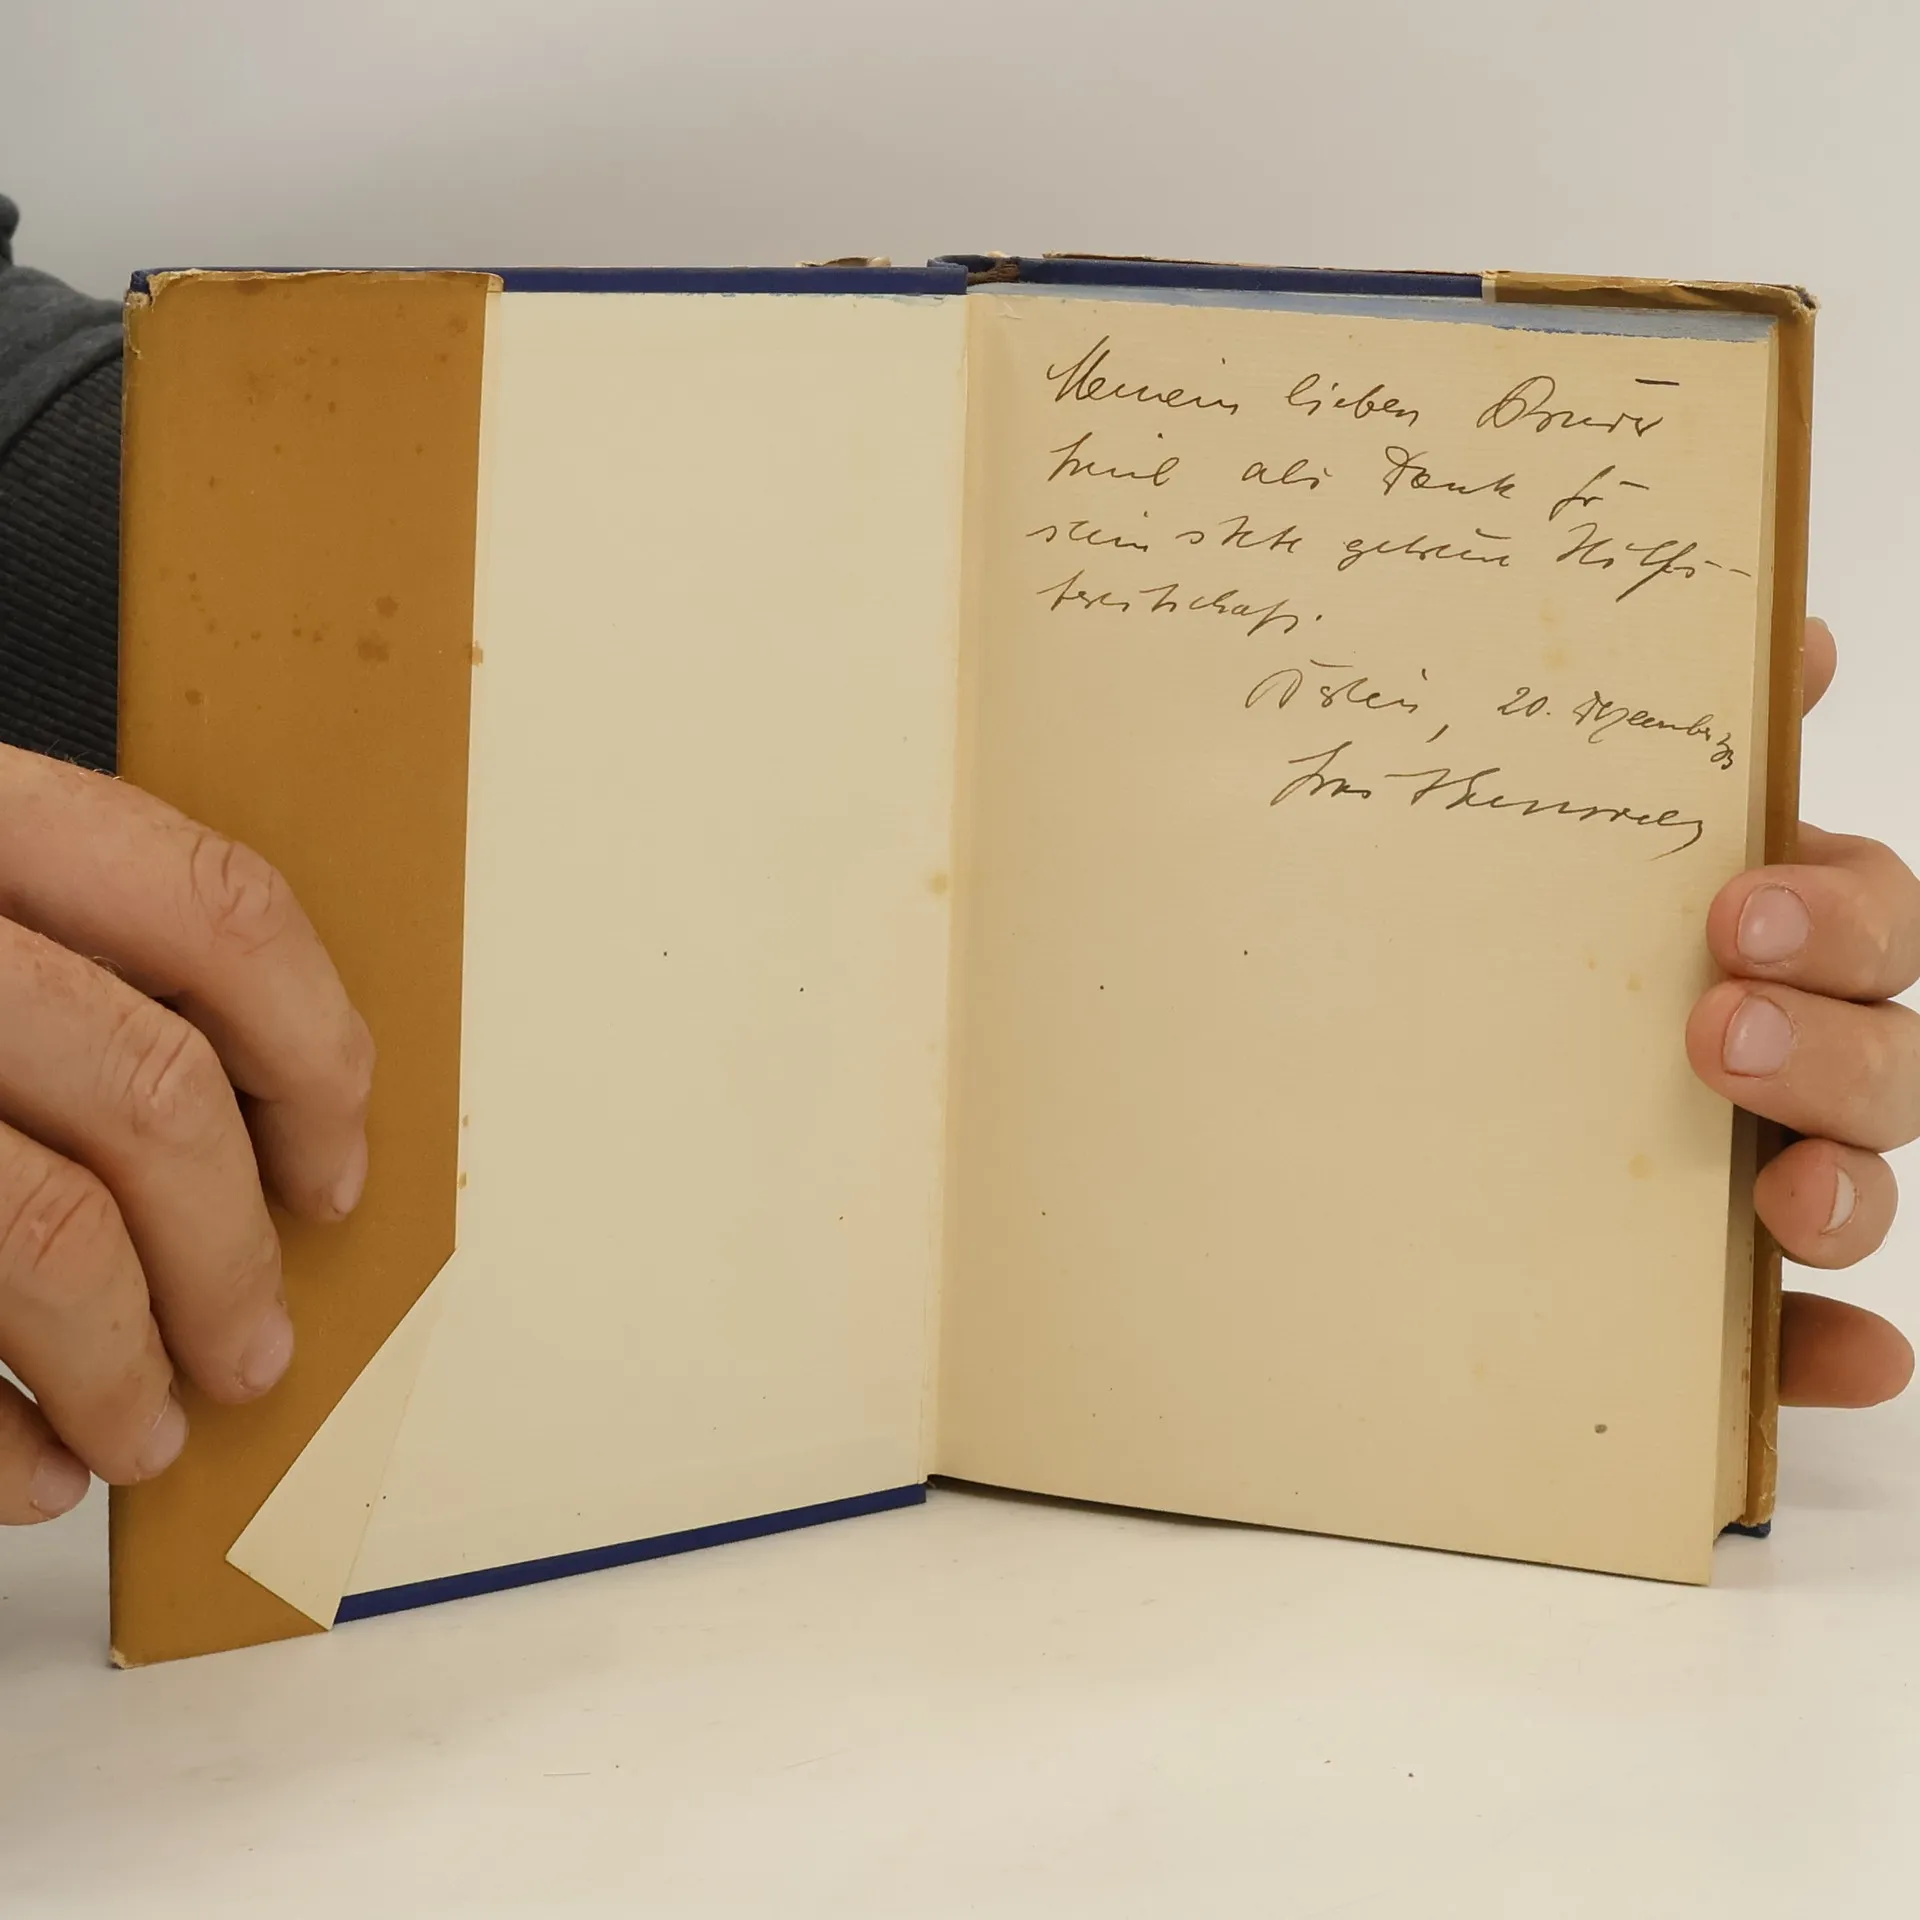 Meinem lieben Bruder
Emil als Dank für
seine stets getreue Hilfs-
bereitschaft.
Berlin, 20. Dezember 33